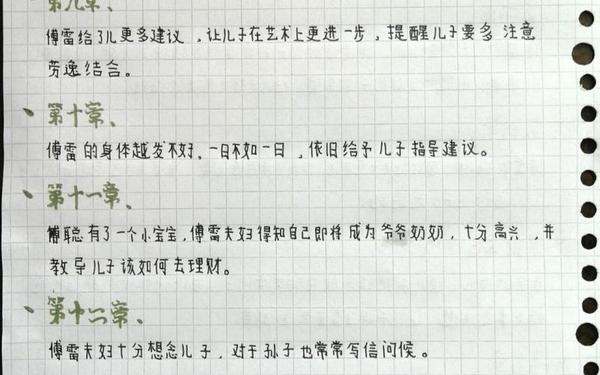 第九章、
傅雷给了儿更多建议，让儿子在艺术上更进一步，提醒儿子要多注意
劳逸结合。
第十章、
傅雷的身体越发不好，一日不如一日，依旧给予儿子指导建议。
第十一章、
傅聪有了一个小宝宝，傅雷夫妇得知自己即将成为爷爷奶奶，十分高兴，并
教导儿子该如何去理财。
第十二章、
傅雷夫妇十分想念儿子，对于孙子也常常写信问候。